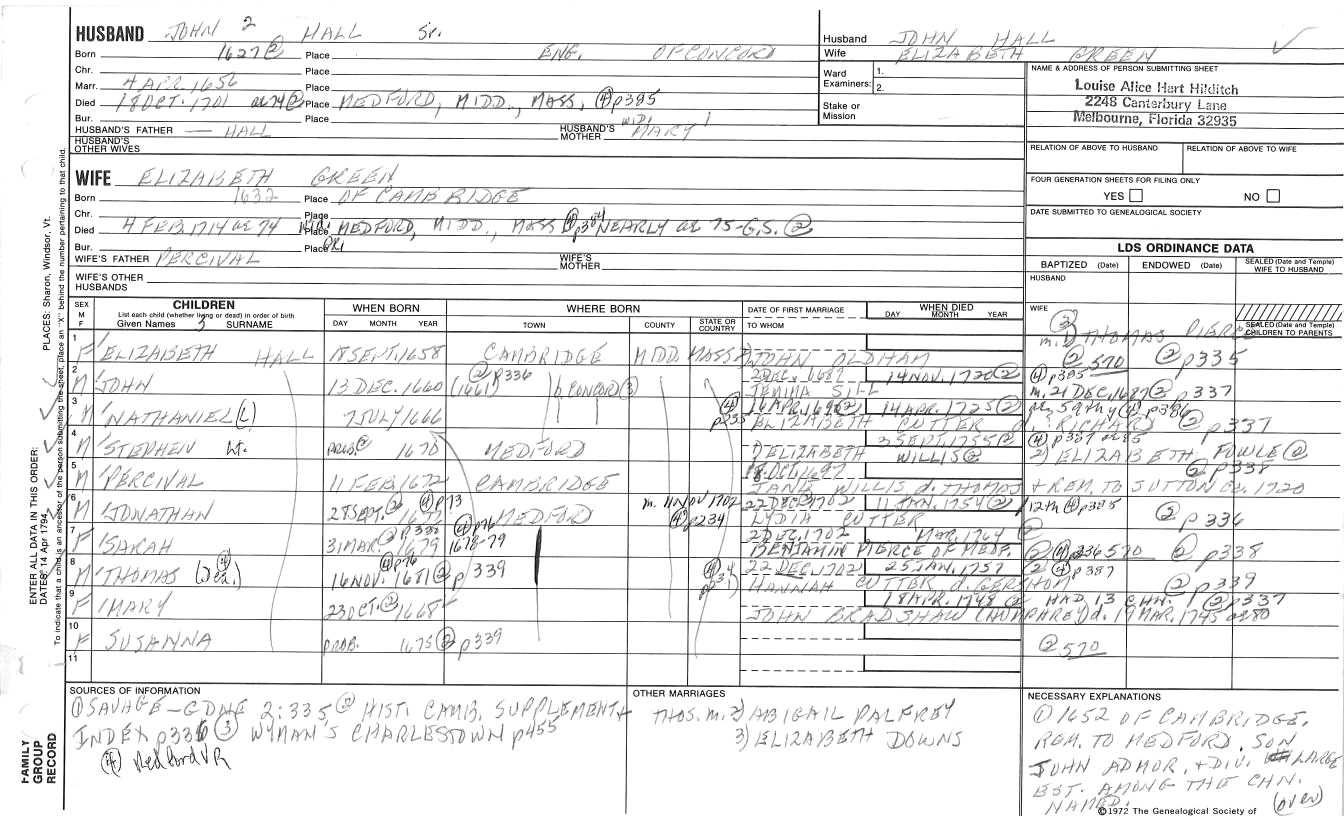 HUSBAND JOHN 2 HALL Sr.
Born 1627② Place ENG. OF CONCORD
Chr. Place
Marr. 4 APR. 1656 Place
Died 18 OCT. 1701 ae 74② Place MEDFORD, MIDD., MASS, ④p385
Bur. Place
HUSBAND'S FATHER — HALL HUSBAND'S MOTHER WID. MARY
HUSBAND'S OTHER WIVES
Husband JOHN HALL
Wife ELIZABETH GREEN
Ward Examiners: 1.
2.
Stake or Mission
NAME & ADDRESS OF PERSON SUBMITTING SHEET
Louise Alice Hart Hilditch
2248 Canterbury Lane
Melbourne, Florida 32935
RELATION OF ABOVE TO HUSBAND RELATION OF ABOVE TO WIFE
FOUR GENERATION SHEETS FOR FILING ONLY
YES NO
DATE SUBMITTED TO GENEALOGICAL SOCIETY
WIFE ELIZABETH GREEN
Born 1632 Place OF CAMBRIDGE
Chr. Place
Died 4 FEB. 1714 ae 74 Place MEDFORD, MIDD., MASS ④p384 NEARLY ae 75-G.S. ②
Bur. Place
WIFE'S FATHER PERCIVAL WIFE'S MOTHER
WIFE'S OTHER HUSBANDS
LDS ORDINANCE DATA
BAPTIZED (Date) ENDOWED (Date) SEALED (Date and Temple) WIFE TO HUSBAND
HUSBAND
WIFE
SEALED (Date and Temple) CHILDREN TO PARENTS
SEX M F
CHILDREN
List each child (whether living or dead) in order of birth
Given Names 3 SURNAME
WHEN BORN
DAY MONTH YEAR
WHERE BORN
TOWN COUNTY STATE OR COUNTRY
DATE OF FIRST MARRIAGE
TO WHOM
WHEN DIED
DAY MONTH YEAR
1 F ELIZABETH HALL 18 SEPT. 1658 CAMBRIDGE MIDD. MASS JOHN OLDHAM
m. 2) THOMAS PIERCE
② 570 ② p335
2 M JOHN 13 DEC. 1660 (1661) ② p336 b. CONCORD ③ 2 DEC. 1687 14 NOV. 1720②
JEMIMA SILL
④ p385 m. 21 DEC. 1687② p337
3 M NATHANIEL (L) 7 JULY 1666 16 APR. 1690② 14 APR. 1725②
ELIZABETH CUTTER d. RICHARD ② p337
4 M STEPHEN Lt. PROB.② 1670 MEDFORD 3 SEPT. 1755②
1) ELIZABETH WILLIS② 2) ELIZABETH FOWLE②
② p338
5 M PERCIVAL 11 FEB 1672 CAMBRIDGE 18 OCT. 1697
JANE WILLIS d. THOMAS + REM. TO SUTTON Ca. 1720
6 M JONATHAN 28 SEPT.② ④ p73 MEDFORD m. 11 NOV 1702 ④ p234 22 DEC. 1702 11 JAN. 1754②
LYDIA CUTTER
12th ④ p385 ② p336
7 F SARAH 31 MAR. 1679 ② p338 ④ p76 1678-79 2 DEC. 1702 MAR. 1764
BENJAMIN PIERCE OF MEDF. ② p338
8 M THOMAS (Dea.) 16 NOV. 1681② p339 ④ p76 22 DEC. 1702 25 JAN. 1757
HANNAH CUTTER d. GERSHOM
④ p387 ② p339
9 F MARY 23 OCT.② 1668 18 APR. 1748 HAD 13 CHN. ② p337
JOHN BRADSHAW (HUMPHREY) d. 19 MAR. 1745 ae 80
10 F SUSANNA PROB. 1675② p339
② 570
11
ENTER ALL DATA IN THIS ORDER:
DATES: 14 Apr 1794
PLACES: Sharon, Windsor, Vt.
To indicate that a child is an ancestor of the person submitting the sheet, place an "X" behind the number pertaining to that child.
FAMILY GROUP RECORD
SOURCES OF INFORMATION
① SAVAGE-GDNE 2:335 ② HIST. CAMB. SUPPLEMENT +
INDEX p336 ③ WYMAN'S CHARLESTOWN p455
④ Medford VR
OTHER MARRIAGES
THOS. m. 2) ABIGAIL PALFREY
3) ELIZABETH DOWNS
NECESSARY EXPLANATIONS
① 1652 OF CAMBRIDGE,
REM. TO MEDFORD. SON
JOHN ADMOR. + DIV. LARGE
EST. AMONG THE CHN.
NAMED. (over)
©1972 The Genealogical Society of